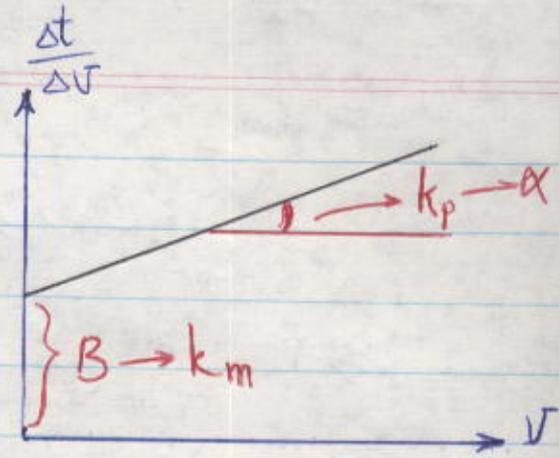 Δt
ΔV
kp → α
B → km
V